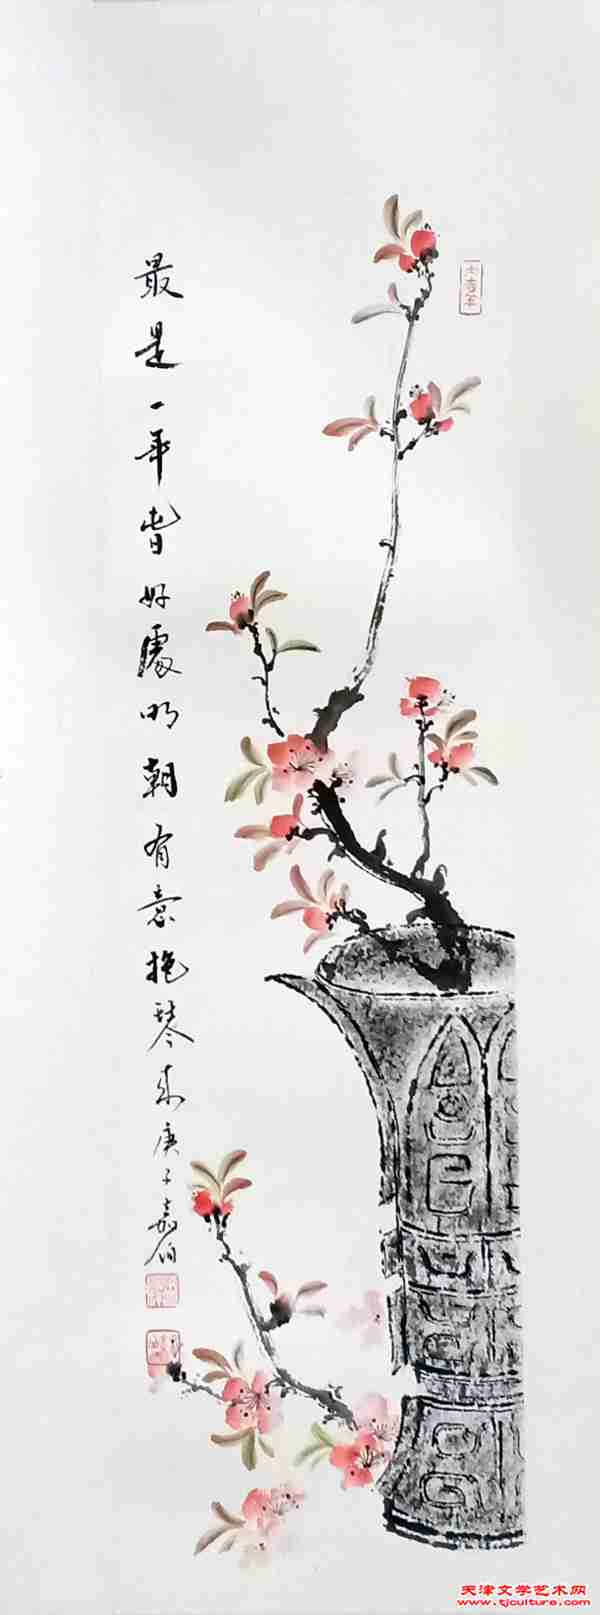 最是一年旹好處明朝有意抱琴來庚子嘉伯
天津文学艺术网
www.tjculture.com